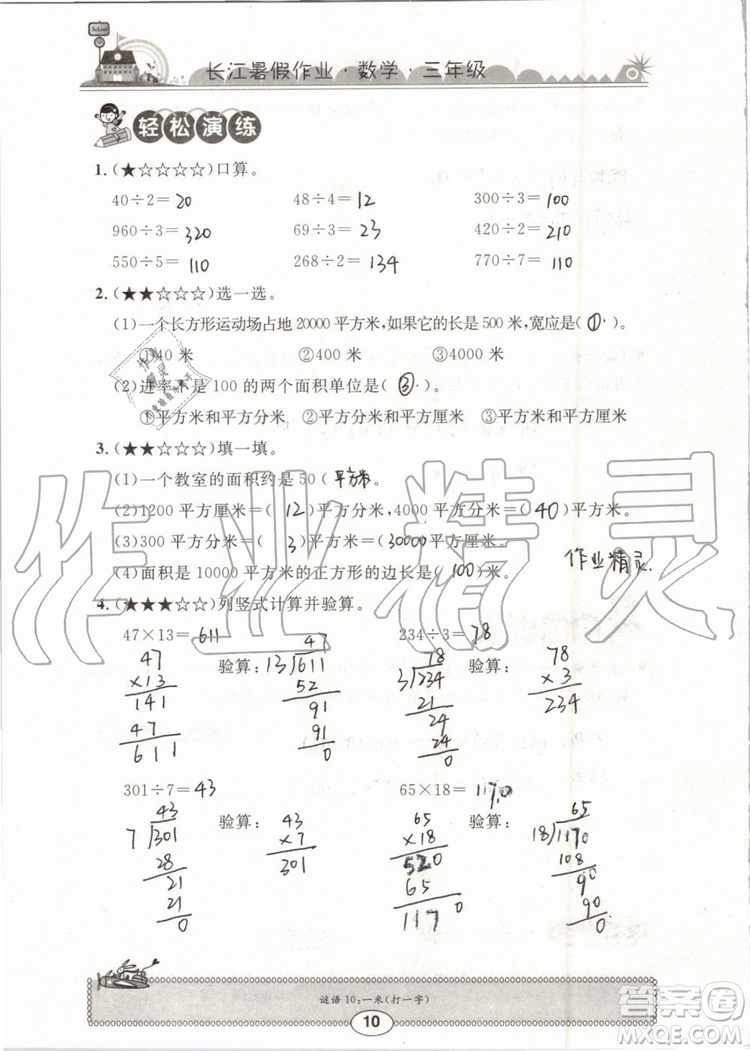 School
长江暑假作业·数学·三年级
轻松演练
1.(★☆☆☆☆)口算。
40÷2=20 48÷4=12 300÷3=100
960÷3=320 69÷3=23 420÷2=210
550÷5=110 268÷2=134 770÷7=110
2.(★★☆☆☆)选一选。
(1)一个长方形运动场占地20000平方米,如果它的长是500米,宽应是(①)。
①40米 ②400米 ③4000米
(2)进率不是100的两个面积单位是(③)。
①平方米和平方分米 ②平方分米和平方厘米 ③平方米和平方厘米
3.(★★☆☆☆)填一填。
(1)一个教室的面积约是50(平方米)。
(2)1200平方厘米=(12)平方分米,4000平方分米=(40)平方米。
(3)300平方分米=(3)平方米=(30000)平方厘米。
(4)面积是10000平方米的正方形的边长是(100)米。
作业精灵.
4.(★★★☆☆)列竖式计算并验算。
47×13=611 234÷3=78
47 验算: 47 78 验算: 78
×13 13)611 3)234 ×3
141 52 21 234
47 91 24
611 91 24
0 0
301÷7=43 65×18=1170
43 验算: 43 65 验算: 65
7)301 ×7 ×18 18)1170
28 301 520 108
21 65 90
21 1170 90
0 0
谜语10:一米(打一字)
10
作业精灵
答案圈
MXQE.COM